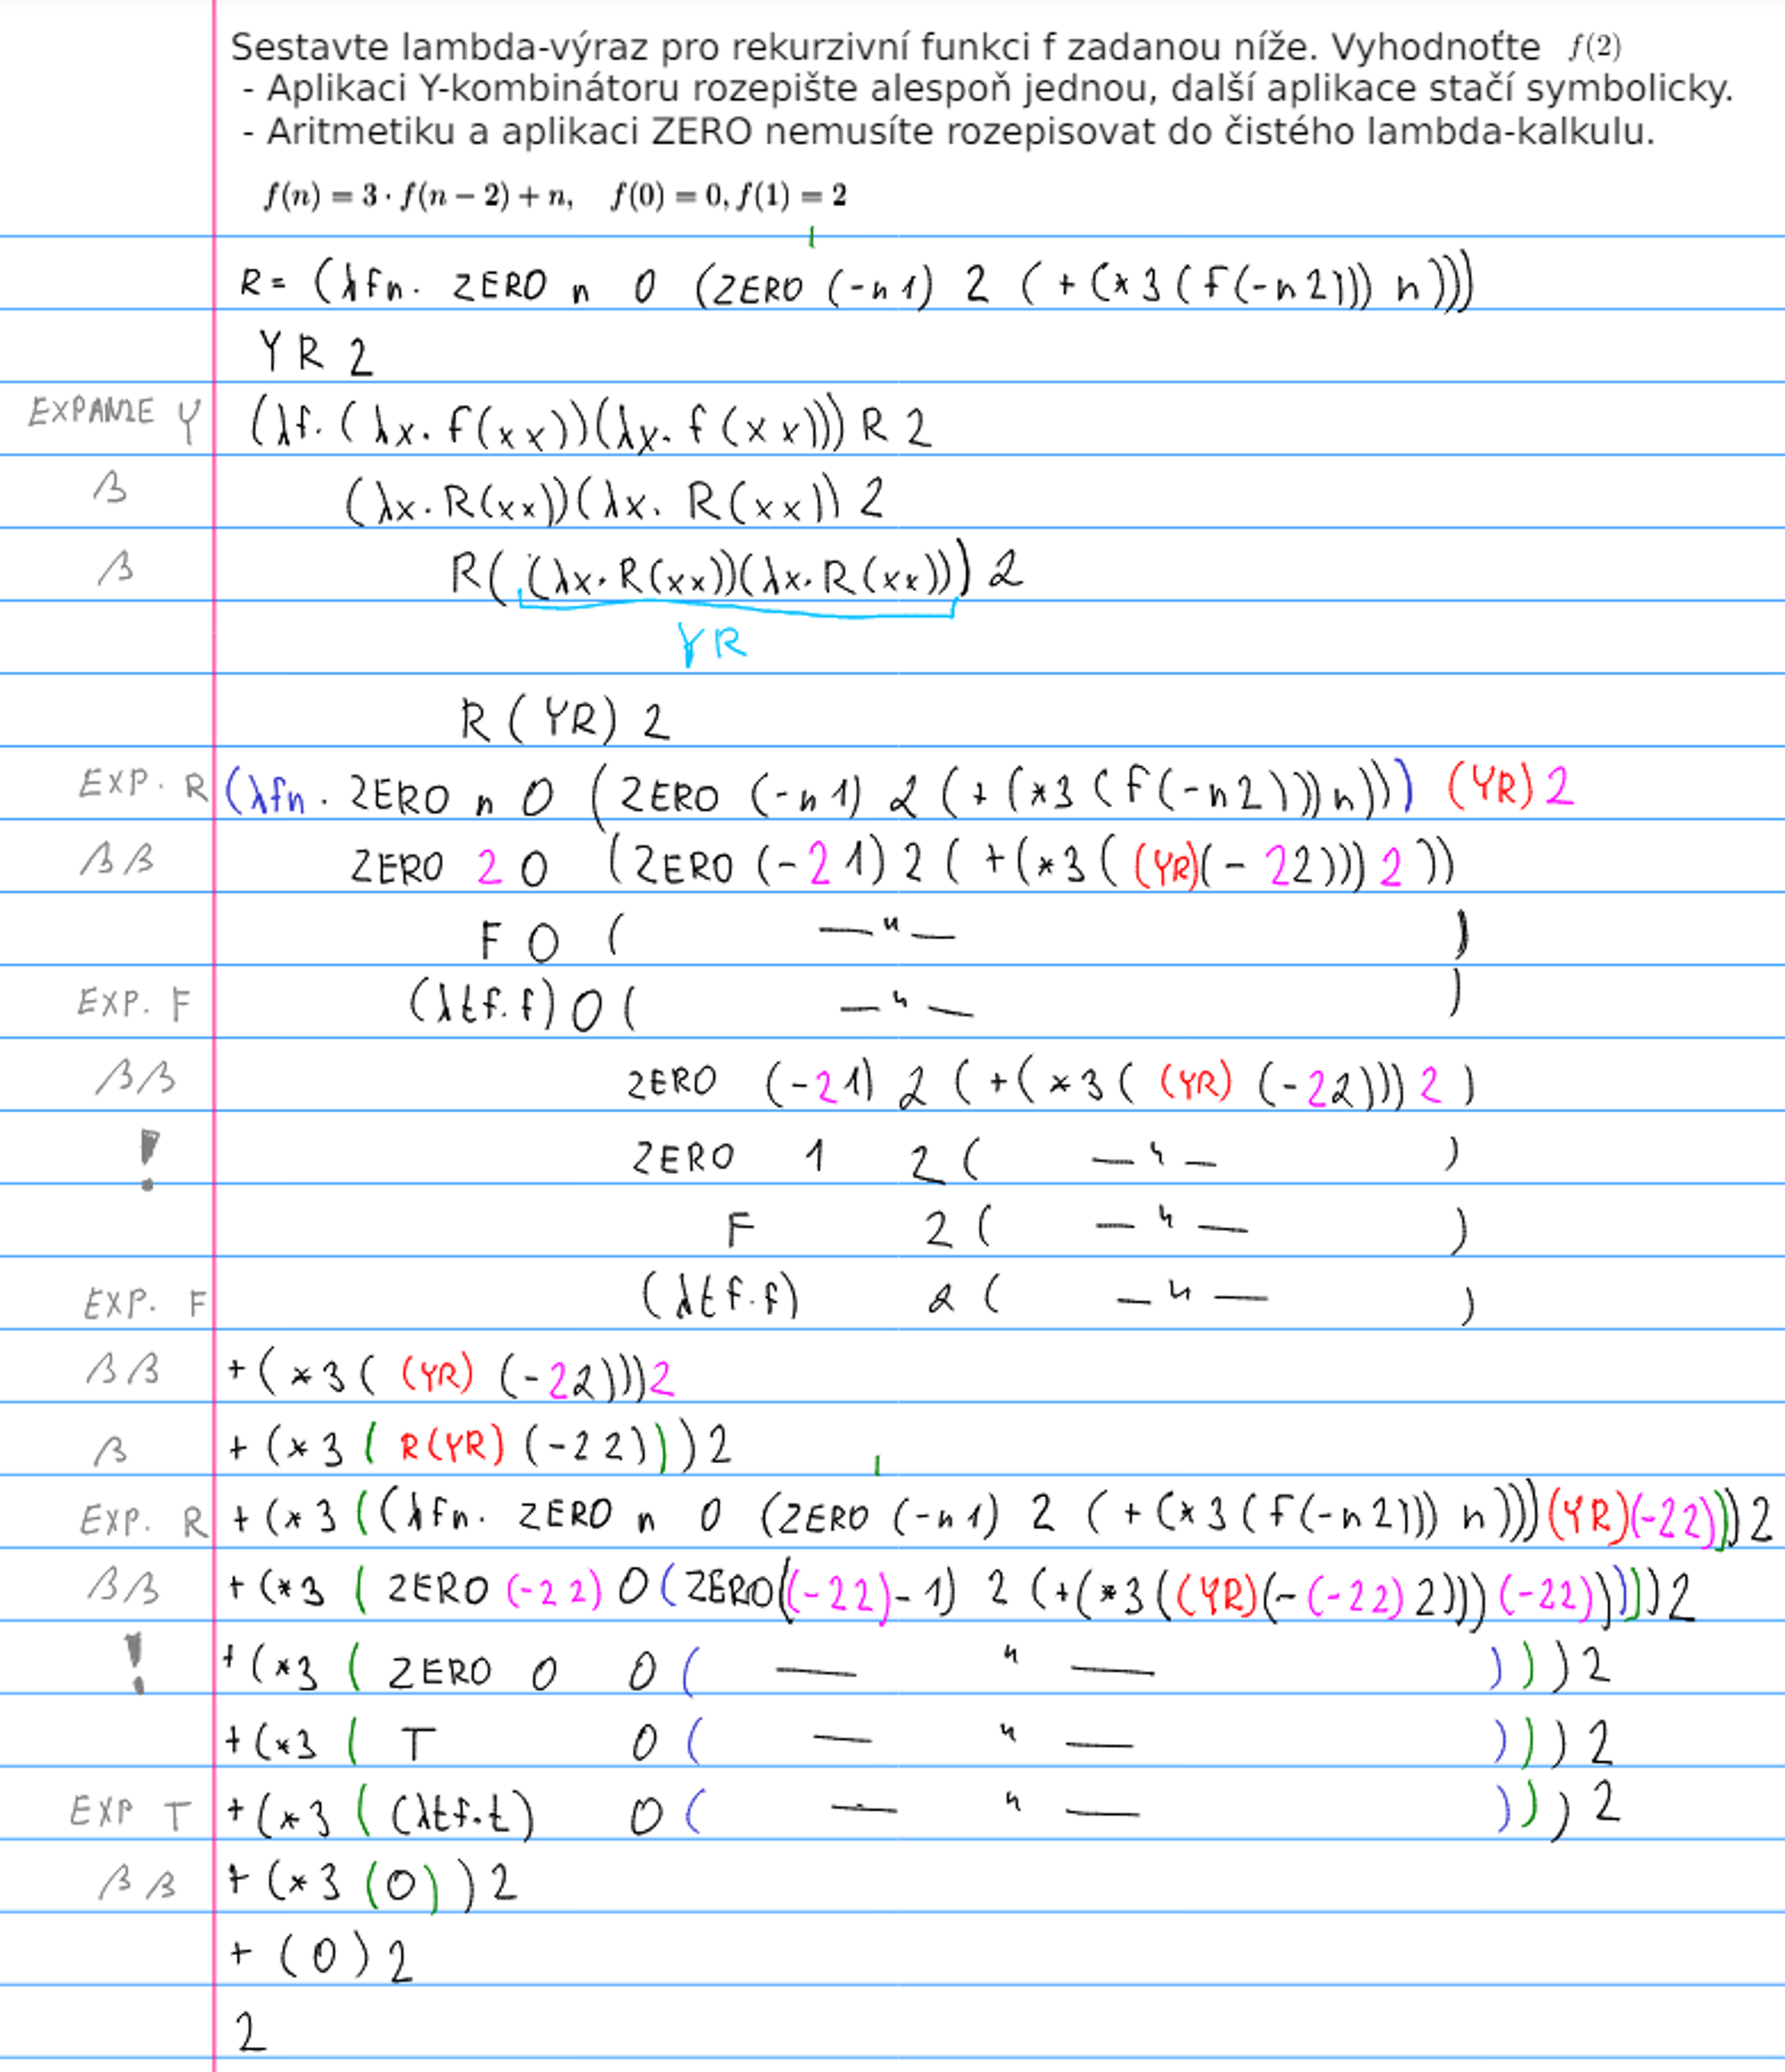 Sestavte lambda-výraz pro rekurzivní funkci f zadanou níže. Vyhodnoťte f(2)
- Aplikaci Y-kombinátoru rozepište alespoň jednou, další aplikace stačí symbolicky.
- Aritmetiku a aplikaci ZERO nemusíte rozepisovat do čistého lambda-kalkulu.
f(n) = 3 · f(n − 2) + n, f(0) = 0, f(1) = 2
R = (λfn. ZERO n 0 (ZERO (-n 1) 2 (+(*3(f(-n2))) n)))
YR 2
EXPANZE Y (λf.(λx.f(xx))(λx.f(xx))) R 2
β (λx.R(xx))(λx.R(xx)) 2
β R((λx.R(xx))(λx.R(xx))) 2
YR
R (YR) 2
EXP. R (λfn. ZERO n 0 (ZERO (-n 1) 2 (+(*3(f(-n2)))n))) (YR) 2
ββ ZERO 2 0 (ZERO (-2 1) 2 (+(*3((YR)(-22))) 2))
F 0 ( —"— )
EXP. F (λtf.f) 0 ( —"— )
ββ ZERO (-21) 2 (+(*3((YR) (-22))) 2)
! ZERO 1 2 ( —"— )
F 2 ( —"— )
EXP. F (λtf.f) 2 ( —"— )
ββ +(*3((YR) (-22)))2
β +(*3(R(YR) (-22)))2
EXP. R +(*3((λfn. ZERO n 0 (ZERO (-n1) 2 (+(*3(f(-n2))) n)))(YR)(-22)))2
ββ +(*3(ZERO (-22) 0(ZERO((-22)-1) 2 (+(*3((YR)(-(-22)2)))(-22)))))2
! +(*3( ZERO 0 0( —"— )))2
+(*3( T 0( —"— )))2
EXP T +(*3((λtf.t) 0( —"— )))2
ββ +(*3(0))2
+(0)2
2